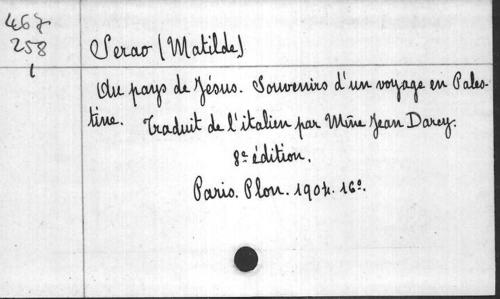 467
258
1
Serao (Matilde)
Au pays de Jésus. Souvenirs d'un voyage en Pales-
tine. Traduit de l'italien par Mme Jean Darcy.
8e édition.
Paris. Plon. 1904. 16º.